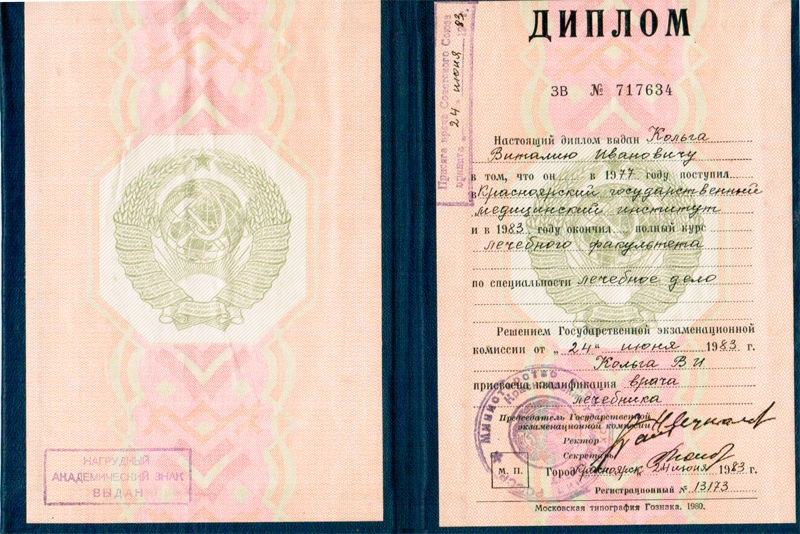 НАГРУДНЫЙ
АКАДЕМИЧЕСКИЙ ЗНАК
ВЫДАН
Присяга врача Советского Союза
принята „24“ июня 1983.
ДИПЛОМ
ЗВ № 717634
Настоящий диплом выдан Кольга
Виталию Ивановичу
в том, что он в 1977 году поступил
в Красноярский государственный
медицинский институт
и в 1983 году окончил полный курс
лечебного факультета
по специальности лечебное дело
Решением Государственной экзаменационной
комиссии от „24“ июня 1983 г.
Кольга В И
присвоена квалификация врача
лечебника
Председатель Государственной
экзаменационной комиссии
Ректор
Секретарь
М. П. Город Красноярск, 24 июня 1983 г.
Регистрационный № 13173
Московская типография Гознака. 1980.
Министерство